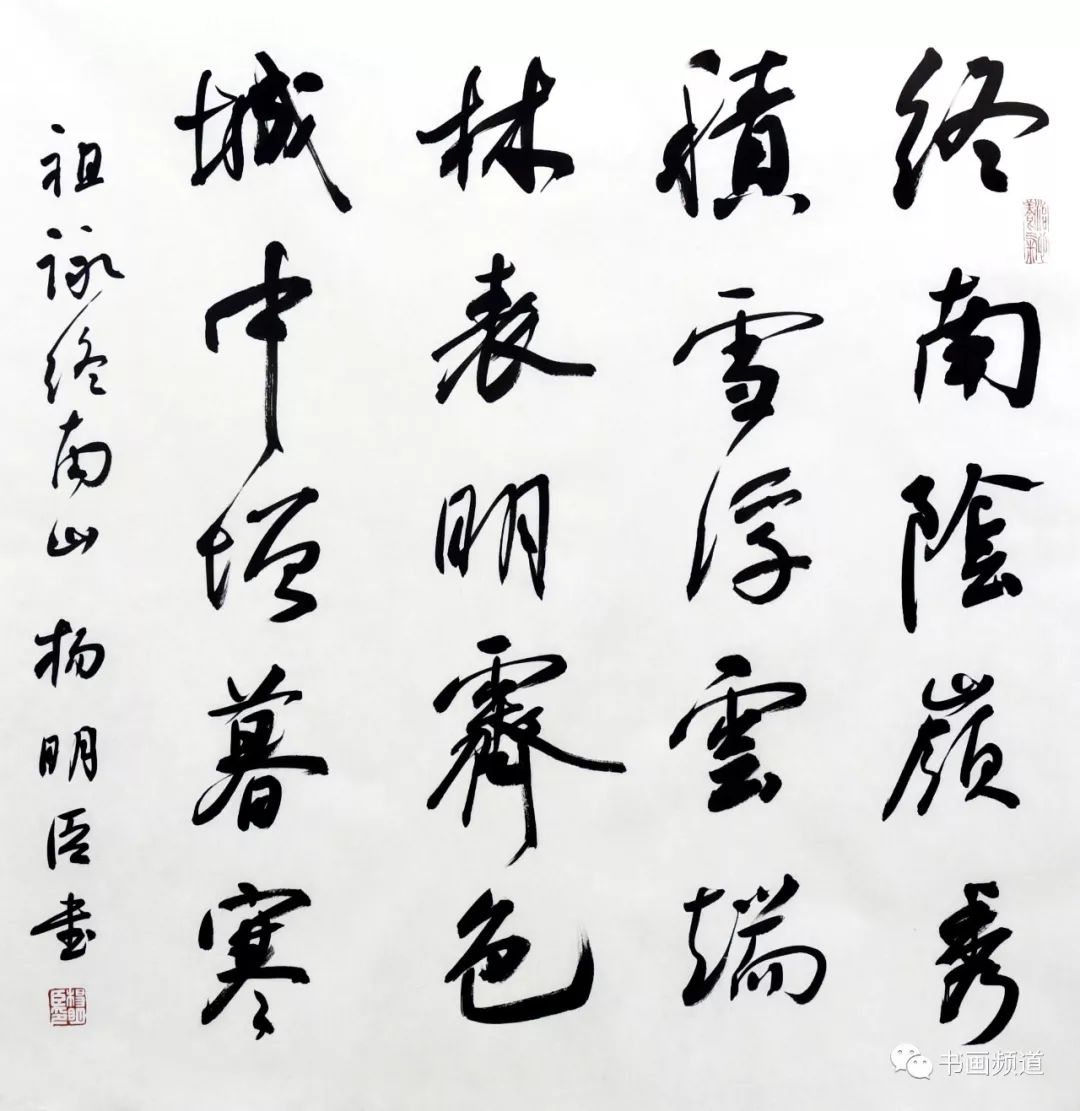 终南陰嶺秀
積雪浮雲端
林表明霽色
城中增暮寒
祖詠终南山 杨明臣书
书画频道